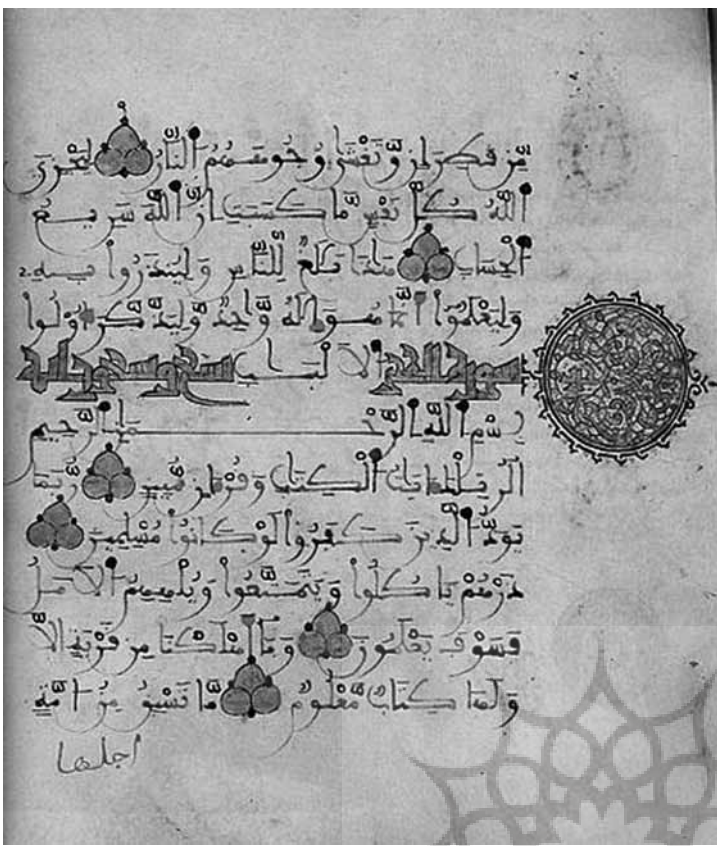 مِّن قَطِرَانٍ وَّتَغْشَىٰ وُجُوهَهُمُ النَّارُ لِيَجْزِيَ
اللَّهُ كُلَّ نَفْسٍ مَّا كَسَبَتْ إِنَّ اللَّهَ سَرِيعُ
الْحِسَابِ هَٰذَا بَلَٰغٌ لِّلنَّاسِ وَلِيُنذَرُوا بِهِ
وَلِيَعْلَمُوا أَنَّمَا هُوَ إِلَٰهٌ وَّاحِدٌ وَّلِيَذَّكَّرَ أُولُوا
الْأَلْبَٰبِ سورة الحجر تسع وتسعون آية
بِسْمِ اللَّهِ الرَّحْمَٰنِ الرَّحِيمِ
الٓر تِلْكَ ءَايَٰتُ الْكِتَٰبِ وَقُرْءَانٍ مُّبِينٍ رُّبَمَا
يَوَدُّ الَّذِينَ كَفَرُوا لَوْ كَانُوا مُسْلِمِينَ
ذَرْهُمْ يَأْكُلُوا وَيَتَمَتَّعُوا وَيُلْهِهِمُ الْأَمَلُ
فَسَوْفَ يَعْلَمُونَ وَمَا أَهْلَكْنَا مِن قَرْيَةٍ إِلَّا
وَلَهَا كِتَابٌ مَّعْلُومٌ مَّا تَسْبِقُ مِنْ أُمَّةٍ
اجلها